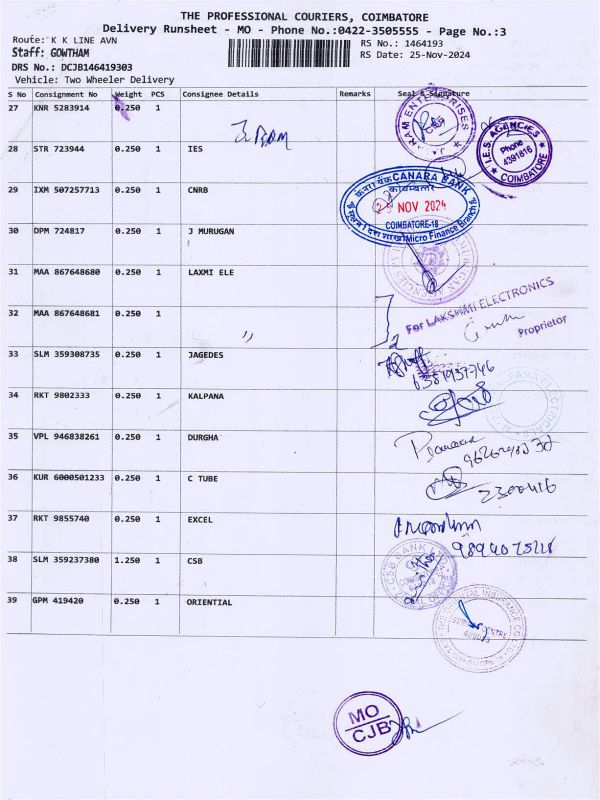 THE PROFESSIONAL COURIERS, COIMBATORE
Delivery Runsheet - MO - Phone No.:0422-3505555 - Page No.:3
Route: K K LINE AVN
RS No.: 1464193
Staff: GOWTHAM
RS Date: 25-Nov-2024
DRS No.: DCJB146419303
Vehicle: Two Wheeler Delivery
S No Consignment No Weight PCS Consignee Details Remarks Seal & Signature
27 KNR 5283914 0.250 1
RAM ENTERPRISES
CBE
28 STR 723944 0.250 1 IES
I.E.S. AGENCIES
Phone
4391816
COIMBATORE
29 IXM 507257713 0.250 1 CNRB
CANARA BANK
कोयम्बत्तूर
25 NOV 2024
COIMBATORE-18
Micro Finance Branch
30 DPM 724817 0.250 1 J MURUGAN
31 MAA 867648680 0.250 1 LAXMI ELE
For LAKSHMI ELECTRONICS
Proprietor
32 MAA 867648681 0.250 1 ,,
2
33 SLM 359308735 0.250 1 JAGEDES
6381937746
34 RKT 9802333 0.250 1 KALPANA
35 VPL 946838261 0.250 1 DURGHA
36 KUR 6000501233 0.250 1 C TUBE
2300416
37 RKT 9855740 0.250 1 EXCEL
38 SLM 359237380 1.250 1 CSB
CSB BANK LTD.
39 GPM 419420 0.250 1 ORIENTIAL
MO
CJB